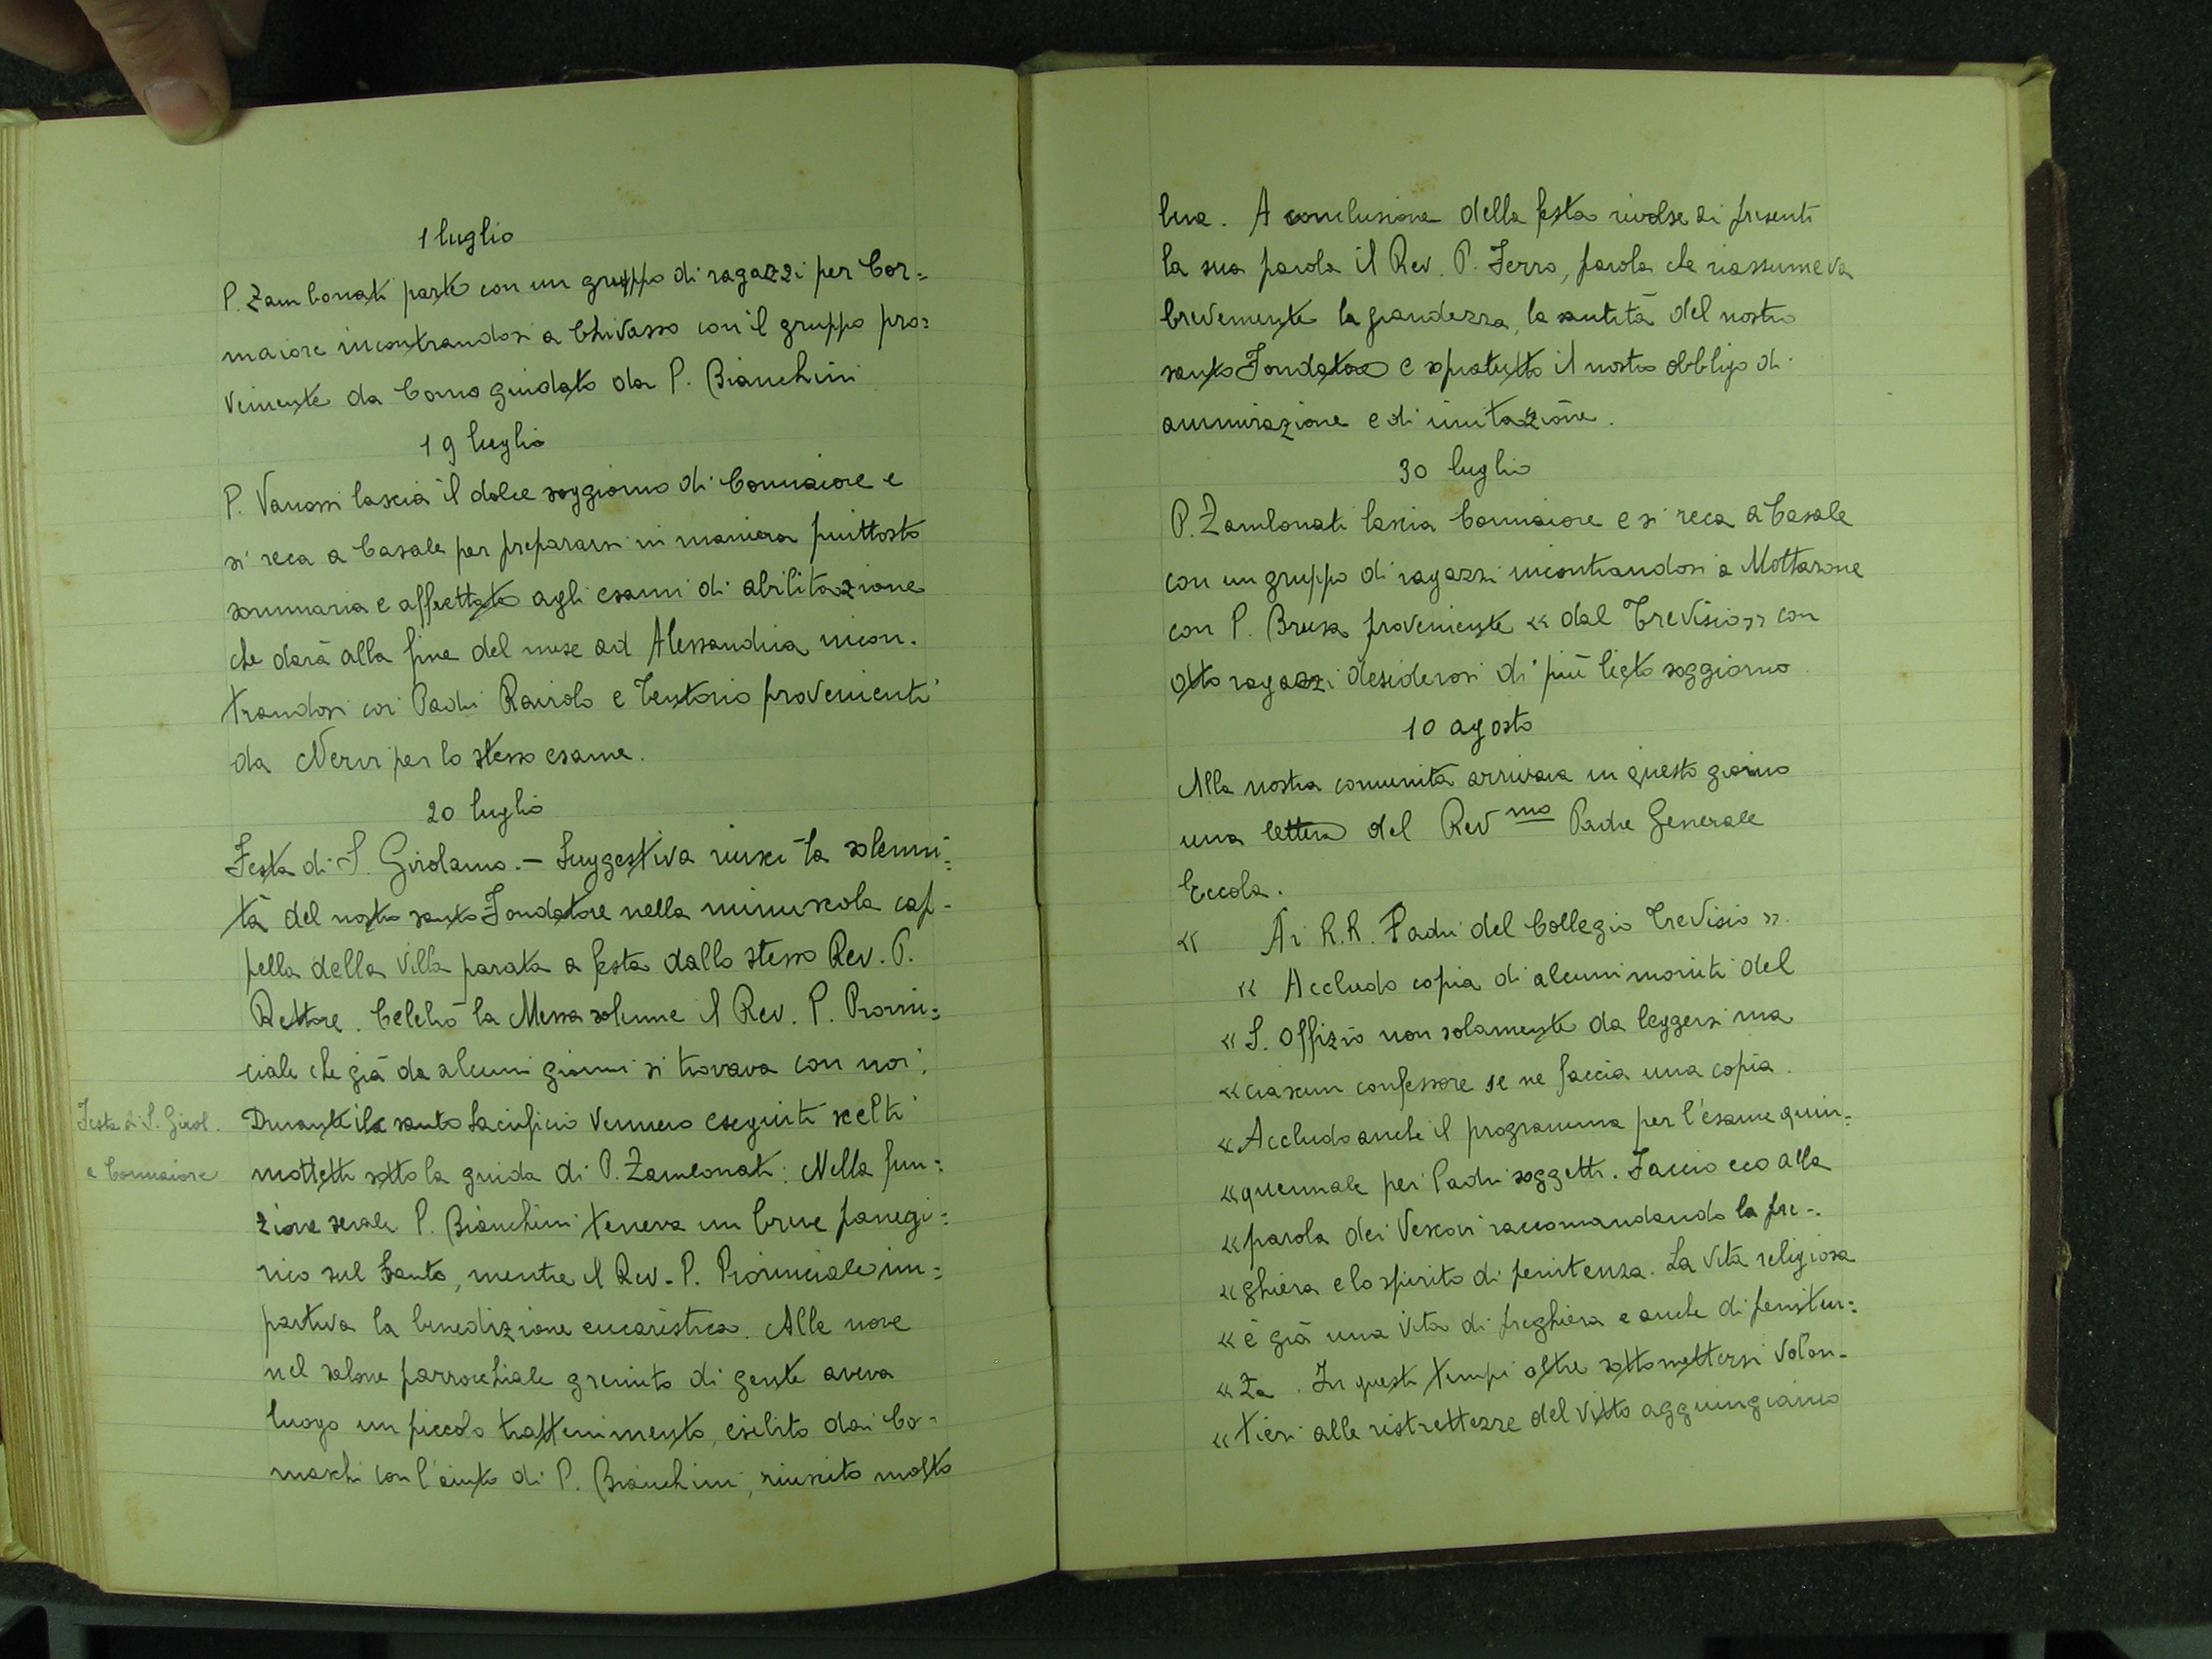 1 luglio
P. Zambonati parte con un gruppo di ragazzi per Cor=
maiore incontrandosi a Chivasso con il gruppo pro=
veniente da Como guidato da P. Bianchini
19 luglio
P. Vanossi lascia il dolce soggiorno di Cormaiore e
si reca a Casale per prepararsi in maniera piuttosto
sommaria e affrettata agli esami di abilitazione
che darà alla fine del mese ad Alessandria incon-
trandosi coi Padri Raviolo e Tentorio provenienti
da Nervi per lo stesso esame.
20 luglio
Festa di S. Girolamo. - Suggestiva riuscì la solenni=
tà del nostro santo Fondatore nella minuscola cap-
pella della villa parata a festa dallo stesso Rev. P.
Rettore. Celebrò la Messa solenne il Rev. P. Provin=
ciale che già da alcuni giorni si trovava con noi.
Festa di S. Girol.
a Cormaiore
Durante il santo Sacrificio vennero eseguiti scelti
mottetti sotto la guida di P. Zambonati. Nella fun=
zione serale P. Bianchini teneva un breve panegi=
rico sul Santo, mentre il Rev. P. Provinciale im=
partiva la benedizione eucaristica. Alle nove
nel salone parrocchiale gremito di gente aveva
luogo un piccolo trattenimento, esibito dai Co=
maschi con l'aiuto di P. Bianchini, riuscito molto
bene. A conclusione della festa rivolse ai presenti
la sua parola il Rev. P. Ferro, parola che riassumeva
brevemente la grandezza, la santità del nostro
santo Fondatore e sopratutto il nostro obbligo di
ammirazione e di imitazione.
30 luglio
P. Zambonati lascia Cormaiore e si reca a Casale
con un gruppo di ragazzi incontrandosi a Mottarone
con P. Brusa proveniente « dal Trevisio » con
otto ragazzi desiderosi di più lieto soggiorno
10 agosto
Alla nostra comunità arrivava in questo giorno
una lettera del Rev mo Padre Generale
Eccola.
« Ai R.R. Padri del Collegio Trevisio ».
« Accludo copia di alcuni moniti del
« S. Offizio non solamente da leggersi ma
« ciascun confessore se ne faccia una copia.
« Accludo anche il programma per l'esame quin=
« quennale pei Padri soggetti. Faccio eco alla
« parola dei Vescovi raccomandando la pre-
« ghiera e lo spirito di penitenza. La vita religiosa
« è già una vita di preghiera e anche di peniten=
« za. In questi tempi oltre sottometterci volon-
« tieri alle ristrettezze del vitto aggiungiamo